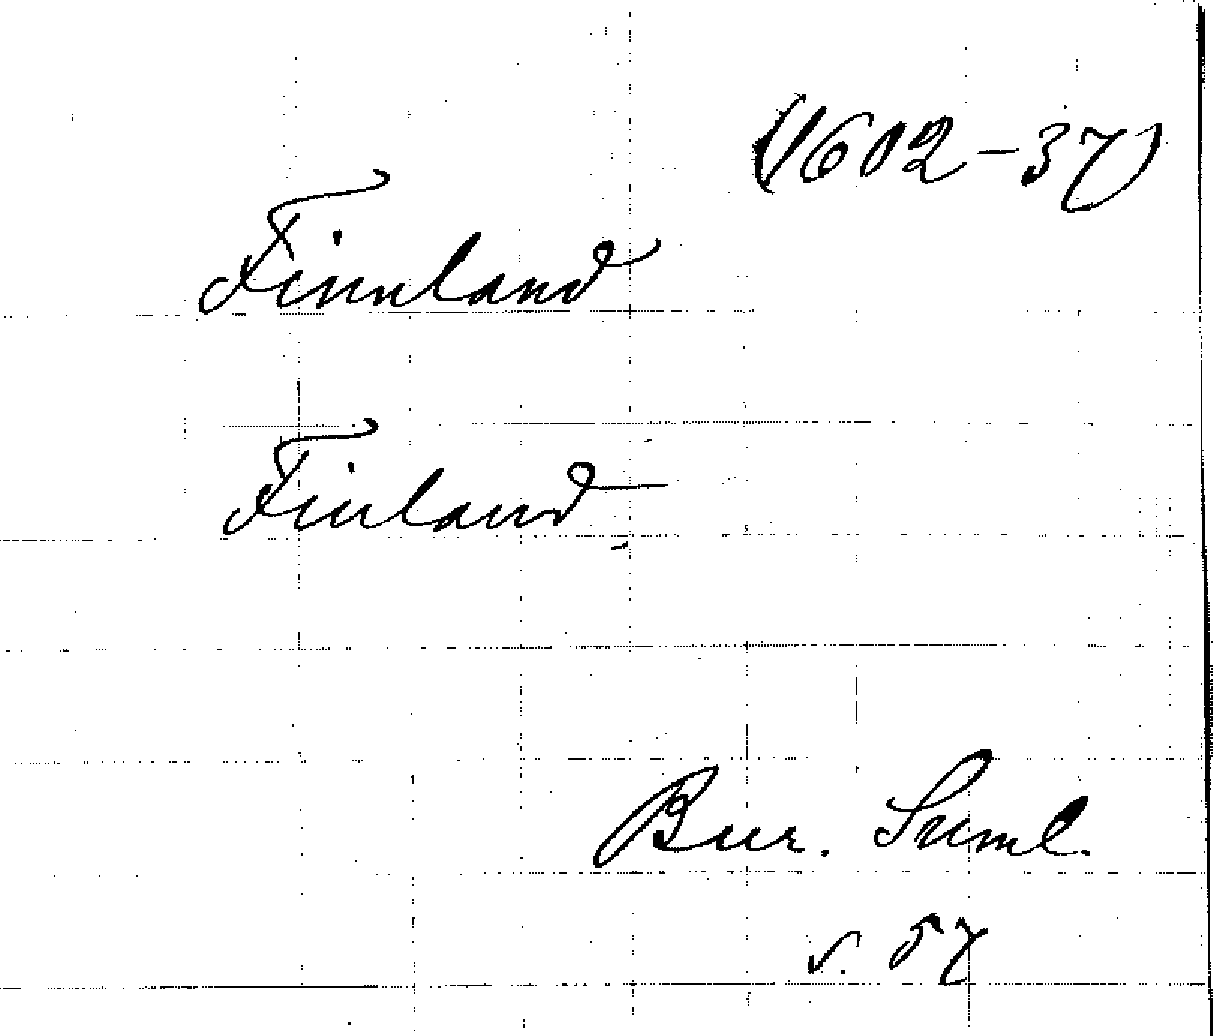 (1602-37)
Finnland
Finland
Bur. Suml.
s. 57